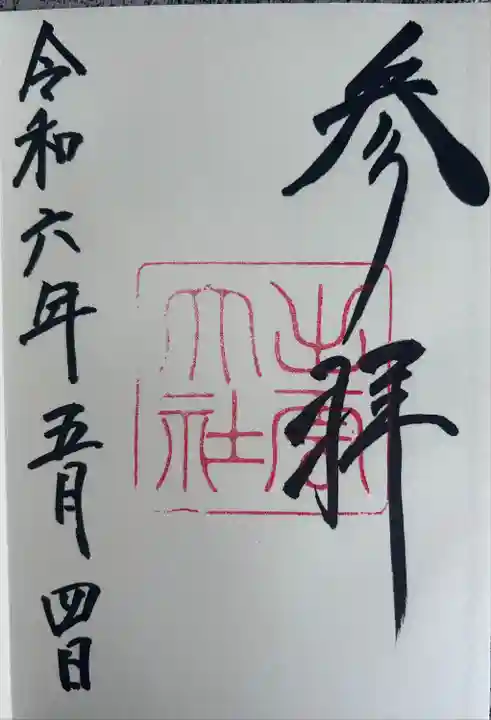 参拝
出雲大社
令和六年五月四日